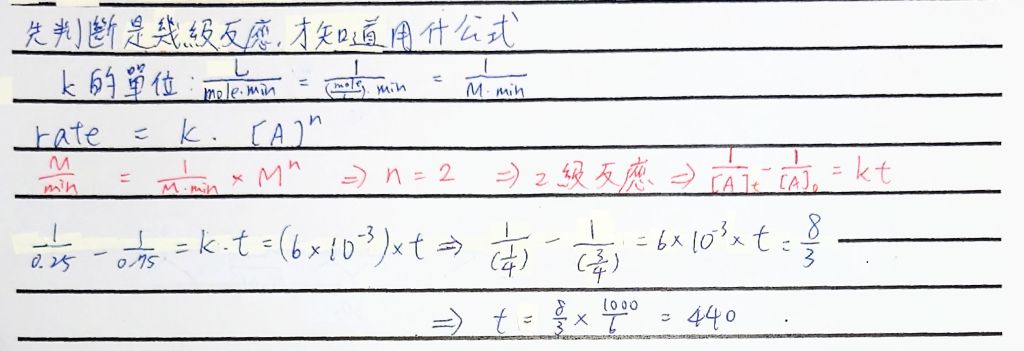 先判斷是幾級反應,才知道用什公式
k的單位: L/(mole·min) = 1/((mole/L)·min) = 1/(M·min)
rate = k · [A]^n
M/min = 1/(M·min) × M^n ⇒ n = 2 ⇒ 2級反應 ⇒ 1/[A]t - 1/[A]0 = kt
1/0.25 - 1/0.75 = k·t = (6×10^-3)×t ⇒ 1/(1/4) - 1/(3/4) = 6×10^-3×t = 8/3
⇒ t = 8/3 × 1000/6 = 440 .